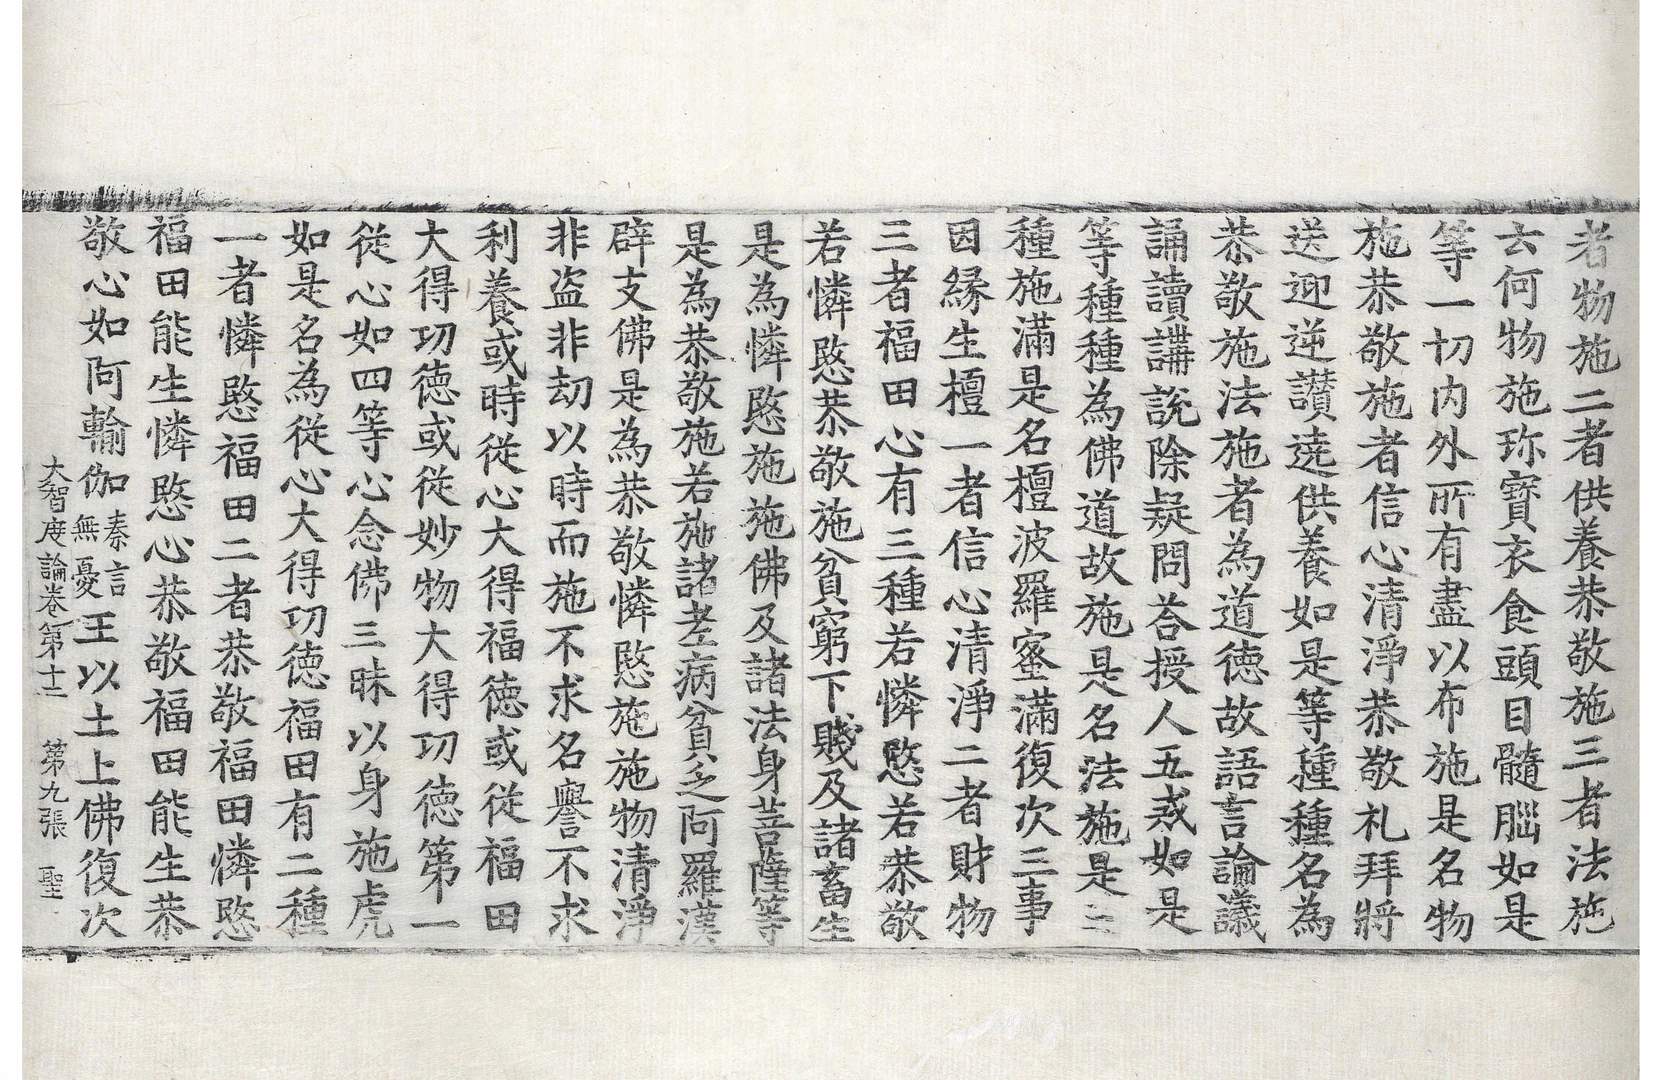 者物施二者供養恭敬施三者法施
云何物施珎寶衣食頭目髓腦如是
等一切內外所有盡以布施是名物
施恭敬施者信心清淨恭敬礼拜將
送迎逆讃遶供養如是等種種名為
恭敬施法施者為道德故語言論議
誦讀講說除疑問荅授人五戒如是
等種種為佛道故施是名法施是三
種施滿是名檀波羅蜜滿復次三事
因緣生檀一者信心清淨二者財物
三者福田心有三種若憐愍若恭敬
若憐愍恭敬施貧窮下賤及諸畜生
是為憐愍施施佛及諸法身菩薩等
是為恭敬施若施諸老病貧乏阿羅漢
辟支佛是為恭敬憐愍施施物清淨
非盜非劫以時而施不求名譽不求
利養或時從心大得福德或從福田
大得功德或從妙物大得功德第一
從心如四等心念佛三昧以身施虎
如是名為從心大得功德福田有二種
一者憐愍福田二者恭敬福田憐愍
福田能生憐愍心恭敬福田能生恭
敬心如阿輸伽秦言無憂王以土上佛復次
大智度論卷第十二 第九張 聖